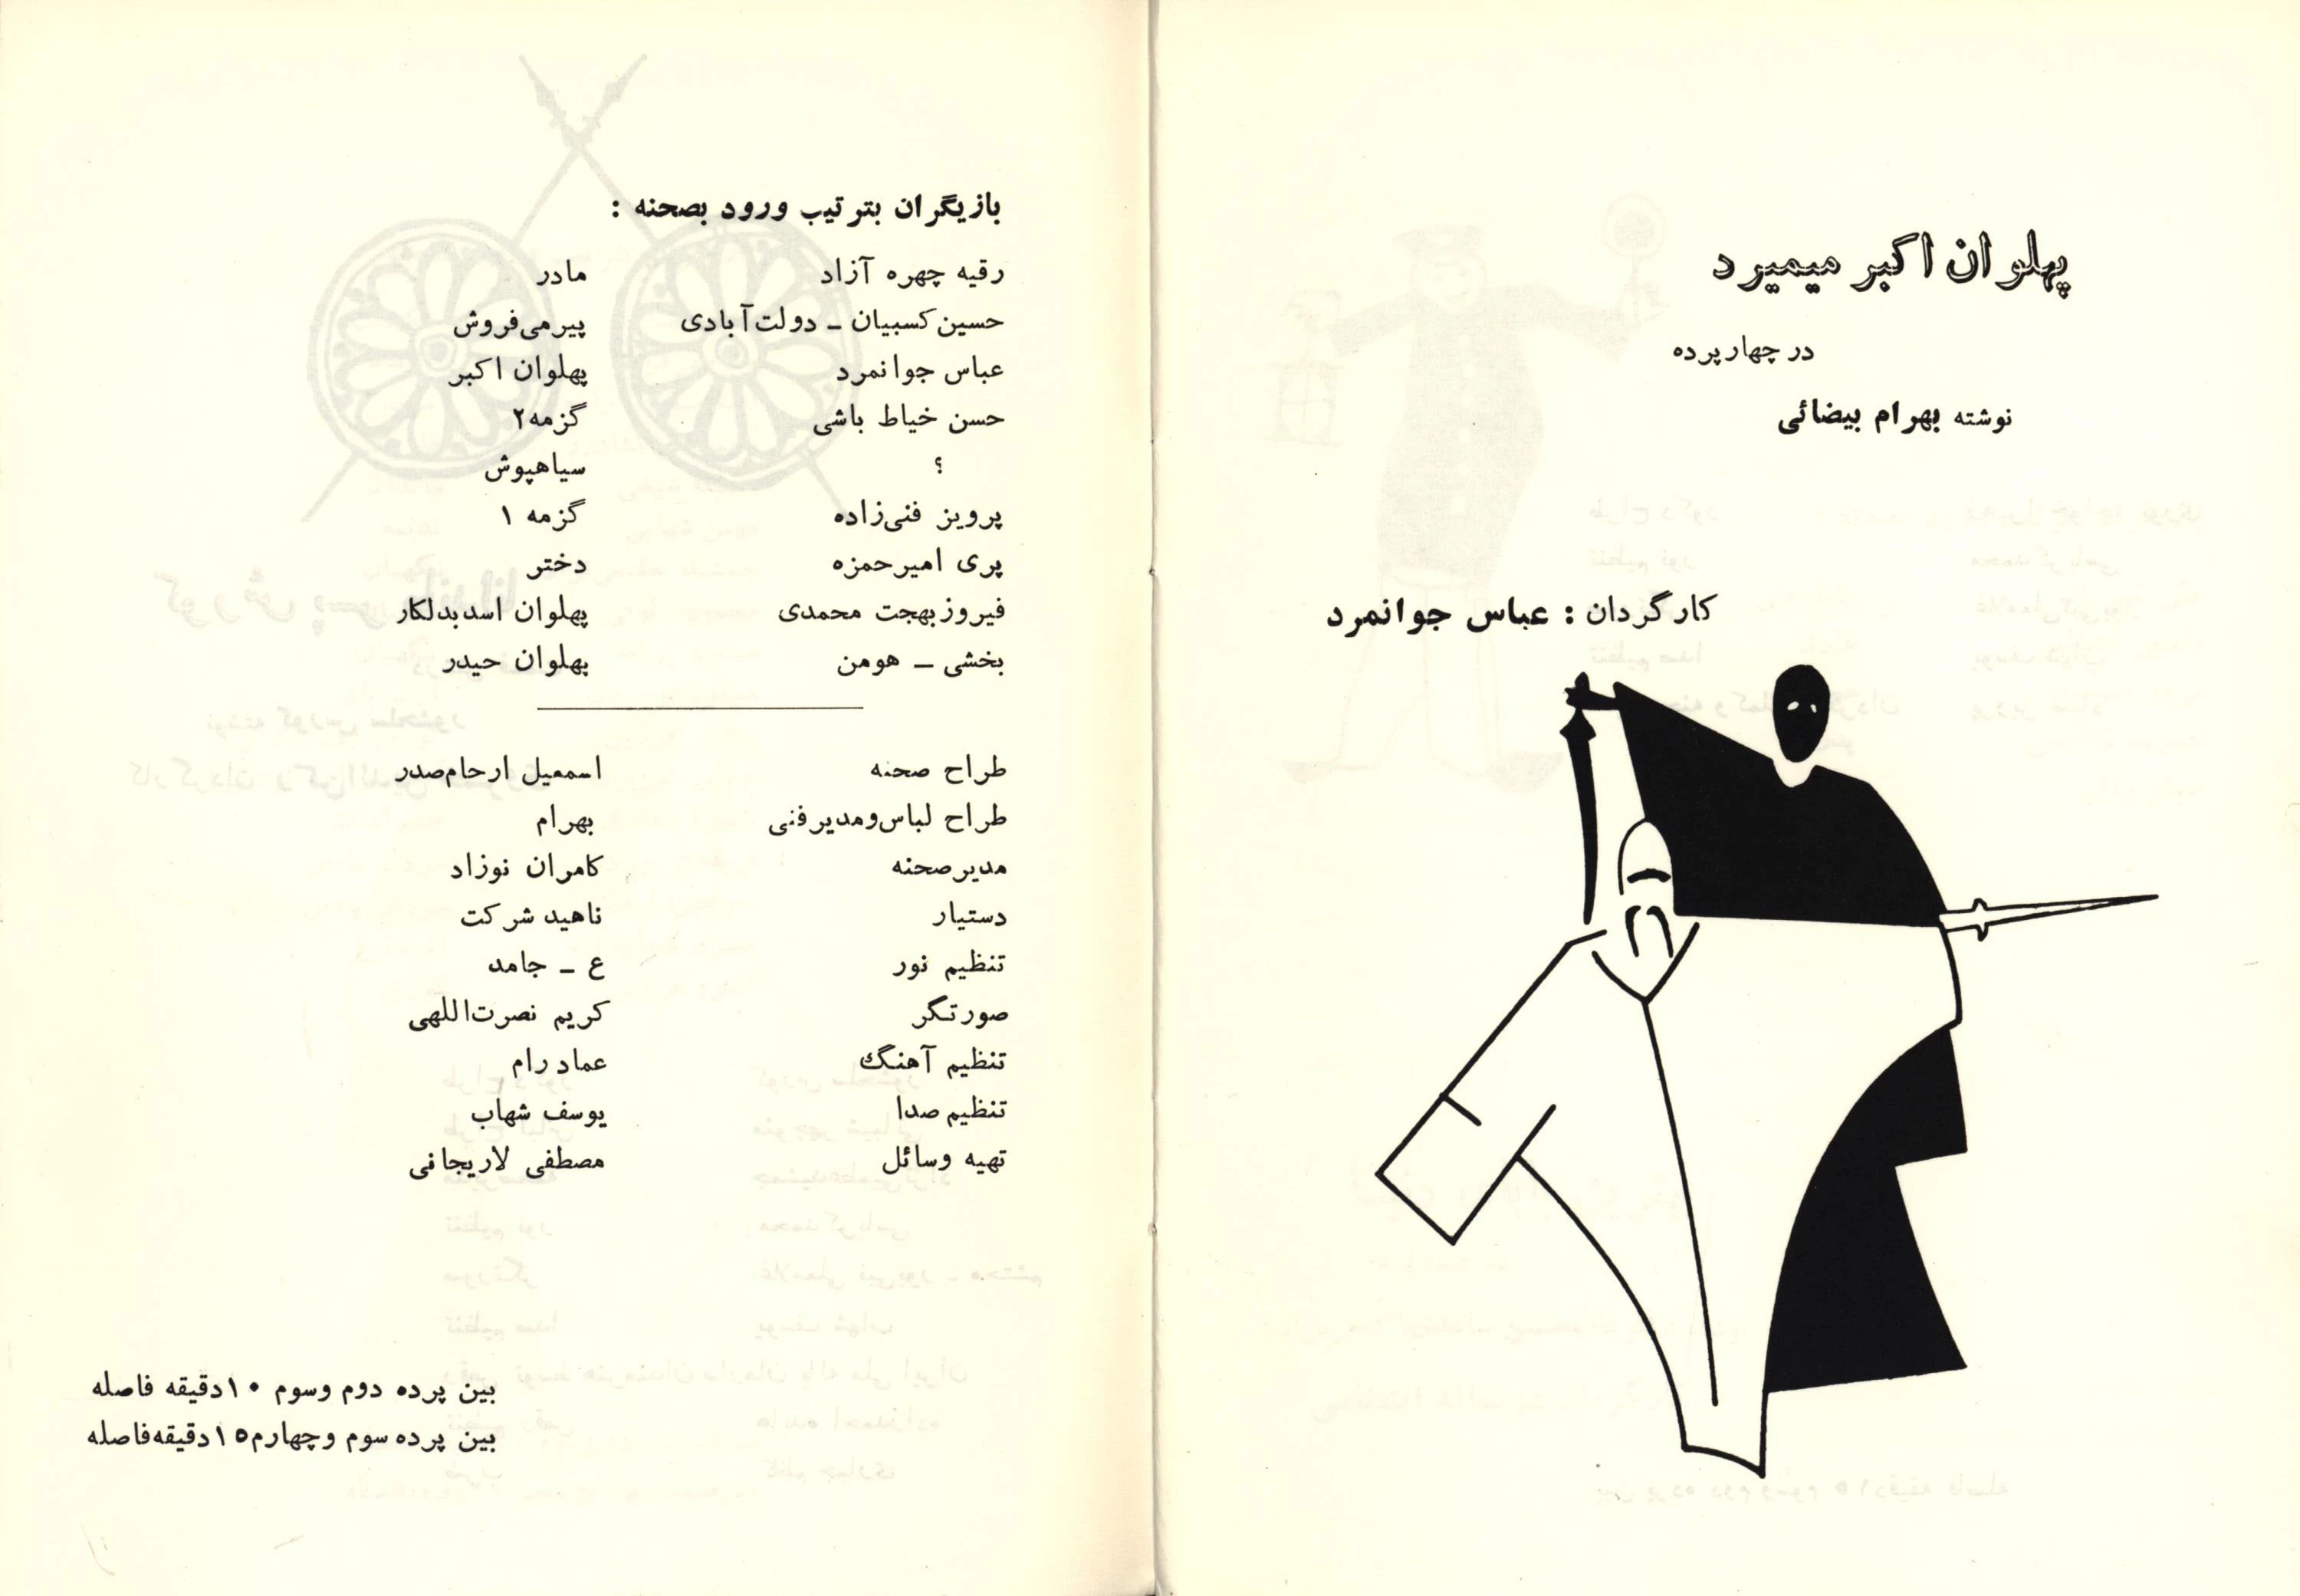 پهلوان اکبر میمیرد
در چهارپرده
نوشته بهرام بیضائی
کارگردان : عباس جوانمرد
بازیگران بترتیب ورود بصحنه :
رقیه چهره آزاد مادر
حسین کسبیان ـ دولت‌آبادی پیرمی‌فروش
عباس جوانمرد پهلوان اکبر
حسن خیاط باشی گزمه۲
؟ سیاهپوش
پرویز فنی‌زاده گزمه ۱
پری امیرحمزه دختر
فیروز بهجت محمدی پهلوان اسدبدلکار
بخشی ـ هومن پهلوان حیدر
طراح صحنه اسمعیل ارحام‌صدر
طراح لباس‌ومدیرفنی بهرام
مدیرصحنه کامران نوزاد
دستیار ناهید شرکت
تنظیم نور ع ـ جامد
صورتگر کریم نصرت‌اللهی
تنظیم آهنگ عماد رام
تنظیم صدا یوسف شهاب
تهیه وسائل مصطفی لاریجانی
بین پرده دوم وسوم ۱۰دقیقه فاصله
بین پرده سوم وچهارم۱۵دقیقه‌فاصله